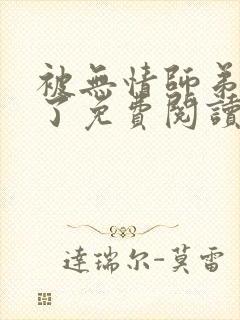 被無情師弟
了免費閱讀
達瑞尔-莫雷